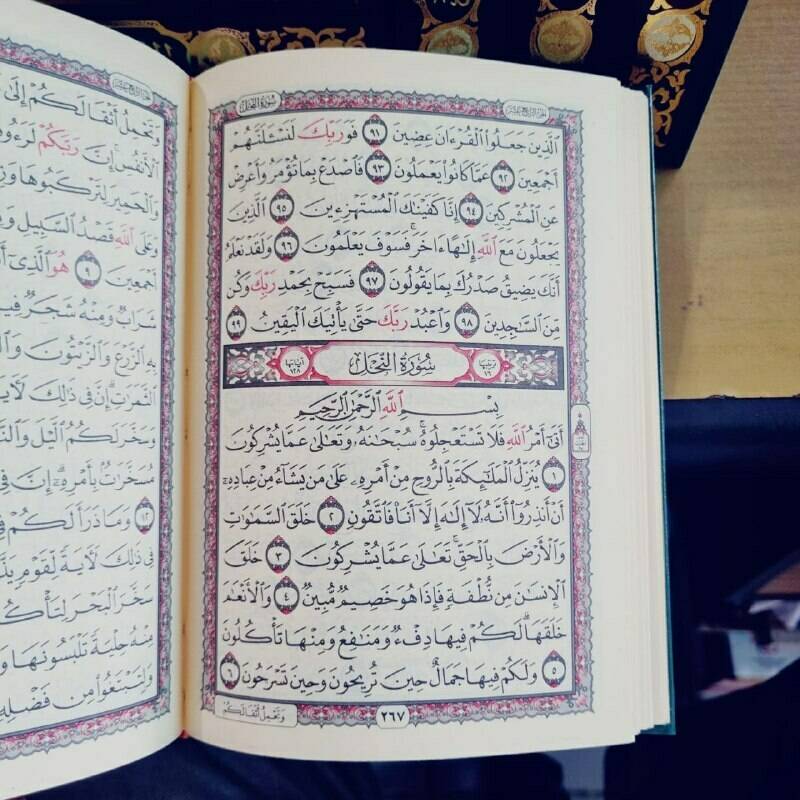 سورة النحل
الجزء الرابع عشر
ٱلَّذِينَ جَعَلُوا۟ ٱلْقُرْءَانَ عِضِينَ ٩١ فَوَرَبِّكَ لَنَسْـَٔلَنَّهُمْ
أَجْمَعِينَ ٩٢ عَمَّا كَانُوا۟ يَعْمَلُونَ ٩٣ فَٱصْدَعْ بِمَا تُؤْمَرُ وَأَعْرِضْ
عَنِ ٱلْمُشْرِكِينَ ٩٤ إِنَّا كَفَيْنَٰكَ ٱلْمُسْتَهْزِءِينَ ٩٥ ٱلَّذِينَ
يَجْعَلُونَ مَعَ ٱللَّهِ إِلَٰهًا ءَاخَرَ ۚ فَسَوْفَ يَعْلَمُونَ ٩٦ وَلَقَدْ نَعْلَمُ
أَنَّكَ يَضِيقُ صَدْرُكَ بِمَا يَقُولُونَ ٩٧ فَسَبِّحْ بِحَمْدِ رَبِّكَ وَكُن
مِّنَ ٱلسَّٰجِدِينَ ٩٨ وَٱعْبُدْ رَبَّكَ حَتَّىٰ يَأْتِيَكَ ٱلْيَقِينُ ٩٩
ترتيبها ١٦ سُورَةُ النَّحْلِ آياتها ١٢٨
بِسْمِ ٱللَّهِ ٱلرَّحْمَٰنِ ٱلرَّحِيمِ
أَتَىٰٓ أَمْرُ ٱللَّهِ فَلَا تَسْتَعْجِلُوهُ ۚ سُبْحَٰنَهُۥ وَتَعَٰلَىٰ عَمَّا يُشْرِكُونَ
١ يُنَزِّلُ ٱلْمَلَٰٓئِكَةَ بِٱلرُّوحِ مِنْ أَمْرِهِۦ عَلَىٰ مَن يَشَآءُ مِنْ عِبَادِهِۦٓ
أَنْ أَنذِرُوٓا۟ أَنَّهُۥ لَآ إِلَٰهَ إِلَّآ أَنَا۠ فَٱتَّقُونِ ٢ خَلَقَ ٱلسَّمَٰوَٰتِ
وَٱلْأَرْضَ بِٱلْحَقِّ ۚ تَعَٰلَىٰ عَمَّا يُشْرِكُونَ ٣ خَلَقَ
ٱلْإِنسَٰنَ مِن نُّطْفَةٍ فَإِذَا هُوَ خَصِيمٌ مُّبِينٌ ٤ وَٱلْأَنْعَٰمَ
خَلَقَهَا ۗ لَكُمْ فِيهَا دِفْءٌ وَمَنَٰفِعُ وَمِنْهَا تَأْكُلُونَ
٥ وَلَكُمْ فِيهَا جَمَالٌ حِينَ تُرِيحُونَ وَحِينَ تَسْرَحُونَ ٦
٢٦٧
وَتَحْمِلُ أَثْقَالَكُمْ
وَتَحْمِلُ أَثْقَالَكُمْ إِلَىٰ
ٱلْأَنفُسِ ۚ إِنَّ رَبَّكُمْ لَرَءُوفٌ
وَٱلْحَمِيرَ لِتَرْكَبُوهَا
وَعَلَى ٱللَّهِ قَصْدُ ٱلسَّبِيلِ
أَجْمَعِينَ ٩ هُوَ ٱلَّذِىٓ
شَرَابٌ وَمِنْهُ شَجَرٌ فِيهِ
بِهِ ٱلزَّرْعَ وَٱلزَّيْتُونَ
ٱلثَّمَرَٰتِ ۗ إِنَّ فِى ذَٰلِكَ لَءَايَةً
وَسَخَّرَ لَكُمُ ٱلَّيْلَ وَٱلنَّهَارَ
مُسَخَّرَٰتٌۢ بِأَمْرِهِۦٓ ۗ إِنَّ فِى
١٢ وَمَا ذَرَأَ لَكُمْ فِى
فِى ذَٰلِكَ لَءَايَةً لِّقَوْمٍ
سَخَّرَ ٱلْبَحْرَ لِتَأْكُلُوا۟
مِنْهُ حِلْيَةً تَلْبَسُونَهَا
وَلِتَبْتَغُوا۟ مِن فَضْلِهِۦ